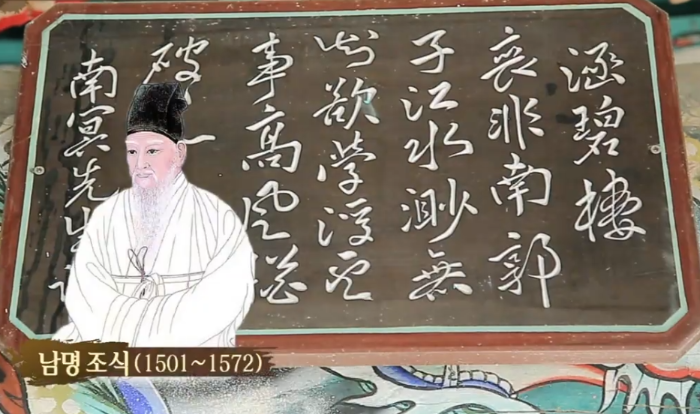 涵碧樓
喪非南郭
子江水渺無
知欲學浮雲
事高風猶
破
南冥先生
남명 조식(1501~1572)